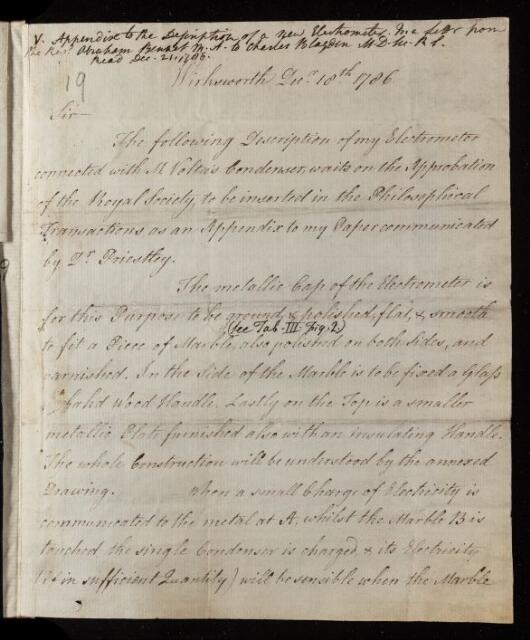 V. Appendix to the Description of a new Electrometer. In a letter from
the Revd. Abraham Bennet M.A. to Charles Blagden M.D. Sec. R.S.
Read Dec. 21. 1786.
19
Wirksworth Decr. 18th 1786
Sir—
The following Description of my Electrometer
connected with M. Volta's Condenser, waits on the Approbation
of the Royal Society, to be inserted in the Philosophical
Transactions as an Appendix to my Paper communicated
by Dr. Priestley.
The metallic Cap of the Electrometer is
for this Purpose to be ground, & polished, flat, & smooth
(see Tab. III. Fig. 2)
to fit a Piece of Marble, also polished on both Sides, and
varnished. In the Side of the Marble is to be fixed a Glass
Wood Handle. Lastly on the Top is a smaller
metallic Plate furnished also with an insulating Handle.
The whole Construction will be understood by the annexed
Drawing. When a small Charge of Electricity is
communicated to the metal at A, whilst the Marble B is
touched the single Condenser is charged, & its Electricity
(if in sufficient Quantity) will be sensible when the Marble